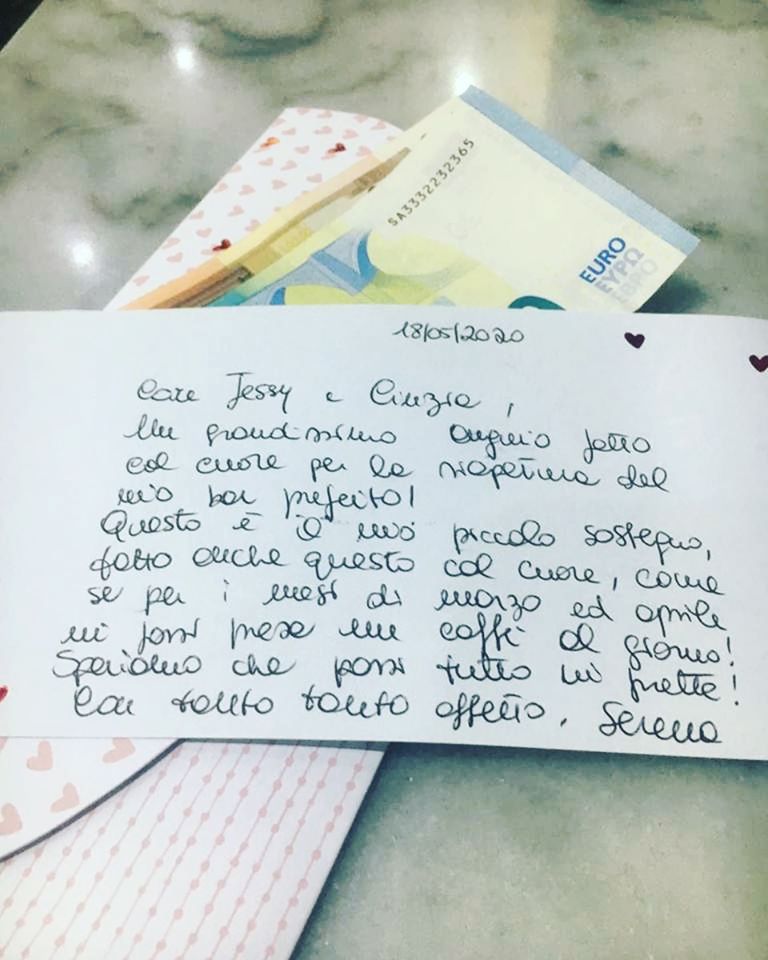 SA3332232365
EURO
ΕΥΡΩ
ЕВРО
18/05/2020
Care Jessy e Cinzia,
Un grandissimo augurio fatto
col cuore per la riapertura del
mio bar preferito!
Questo è il mio piccolo sostegno,
fatto anche questo col cuore, come
se per i mesi di marzo ed aprile
mi fossi presa un caffè al giorno!
Speriamo che passi tutto in fretta!
Con tanto tanto affetto. Serena